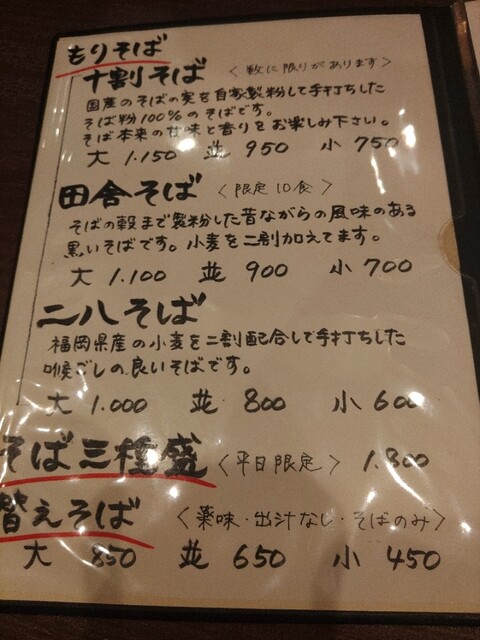 もりそば
十割そば 〈数に限りがあります〉
国産のそばの実を自家製粉して手打ちした
そば粉100%のそばです。
そば本来の甘味と香りをお楽しみ下さい。
大 1.150 並 950 小 750
田舎そば 〈限定10食〉
そばの殻まで製粉した昔ながらの風味のある
黒いそばです。小麦を二割加えてます。
大 1.100 並 900 小 700
二八そば
福岡県産の小麦を二割配合して手打ちした
喉ごしの良いそばです。
大 1.000 並 800 小 600
そば三種盛 〈平日限定〉 1.800
替えそば 〈薬味・出汁なし・そばのみ〉
大 850 並 650 小 450